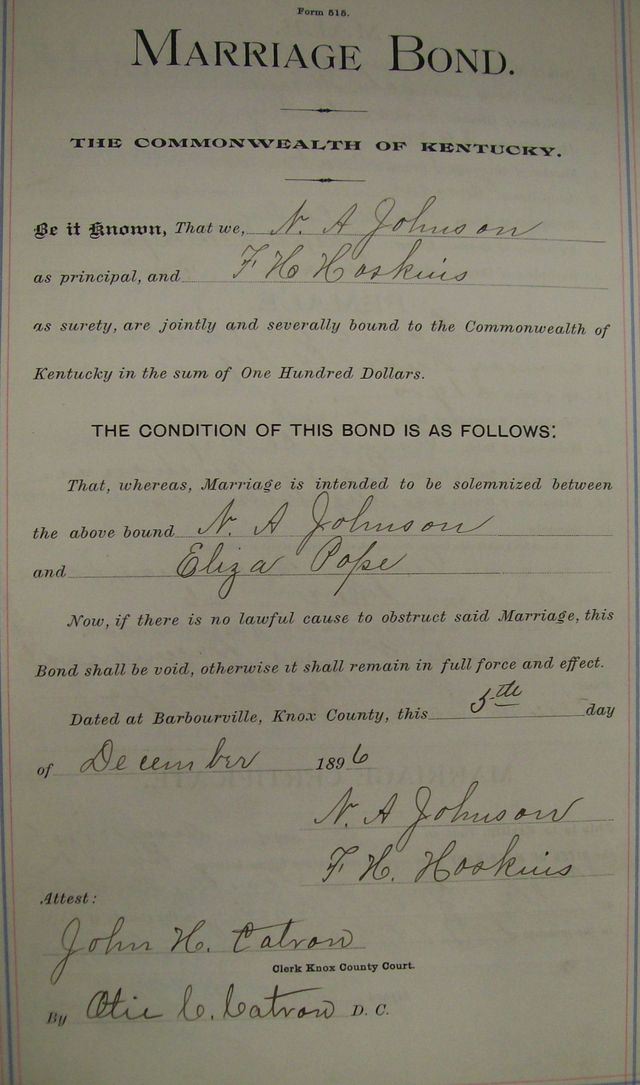 Form 515.
MARRIAGE BOND.
THE COMMONWEALTH OF KENTUCKY.
Be it Known, That we, N. A Johnson
as principal, and F H Hoskins
as surety, are jointly and severally bound to the Commonwealth of
Kentucky in the sum of One Hundred Dollars.
THE CONDITION OF THIS BOND IS AS FOLLOWS:
That, whereas, Marriage is intended to be solemnized between
the above bound N. A Johnson
and Eliza Pope
Now, if there is no lawful cause to obstruct said Marriage, this
Bond shall be void, otherwise it shall remain in full force and effect.
Dated at Barbourville, Knox County, this 5th day
of December 1896
N. A Johnson
F H. Hoskins
Attest:
John H. Catron
Clerk Knox County Court.
By Otie C. Catron D. C.